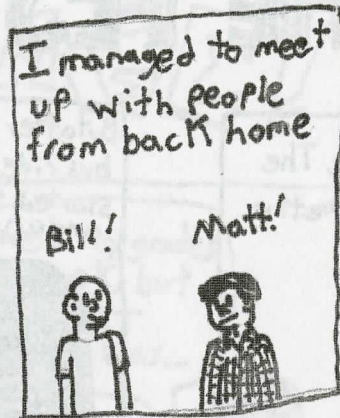 I managed to meet
up with people
from back home
Bill! Matt!